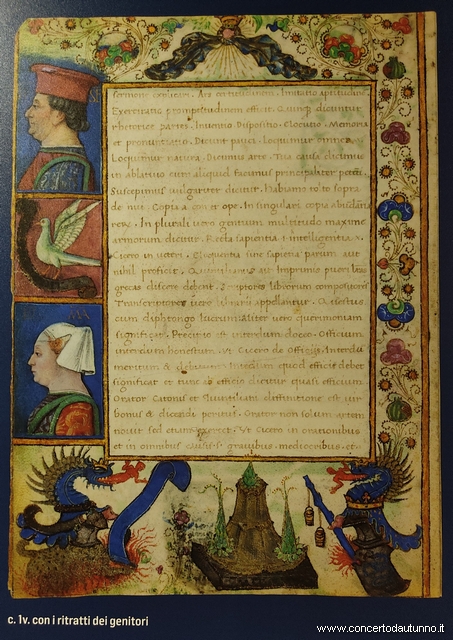 sermone explicari. Ars certitudinem. Imitatio aptitudinē
Exercitatio promptitudinem efficit. Quinq dicuntur
rhetorice partes. Inventio. Dispositio. Elocutio. Memoria
et pronuntiatio. Dicunt pauci. Loquimur omnes.
Loquimur natura. Dicimus arte. Tua causa dicimus
in ablativo cum aliquid facimus principaliter
Suscepimus vulgariter dicitur. habiamo tolto sopra
de nui. Copia a con et ope. In singulari copia
In plurali vero gentium multitudo maxime
armorum dicitur. Recta sapientia intelligentia
Cicero in veteri. Eloquentia sine sapientia parum aut
nihil proficit. Quintilianus ait Imprimis pueri
grecas discere debent. Scriptores librorum compositores
Transcriptores vero librarii appellantur. Questus
cum diphtongo lucrum aliter vero querimoniam
significat. Precipio et interdum doceo. Officium
interdum honestum. Vt Cicero de Officijs. Interdū
meritum & debitum. Interdum quod efficere debet
significat et tunc ab efficio dicitur quasi efficium.
Orator Catonis et Quintiliani diffinitione est vir
bonus & dicendi peritus. Orator non solum artem
novit sed etiam exercet. Vt Cicero in orationibus
et in omnibus causis gravibus mediocribus. et
c. 1v. con i ritratti dei genitori
www.concertodautunno.it